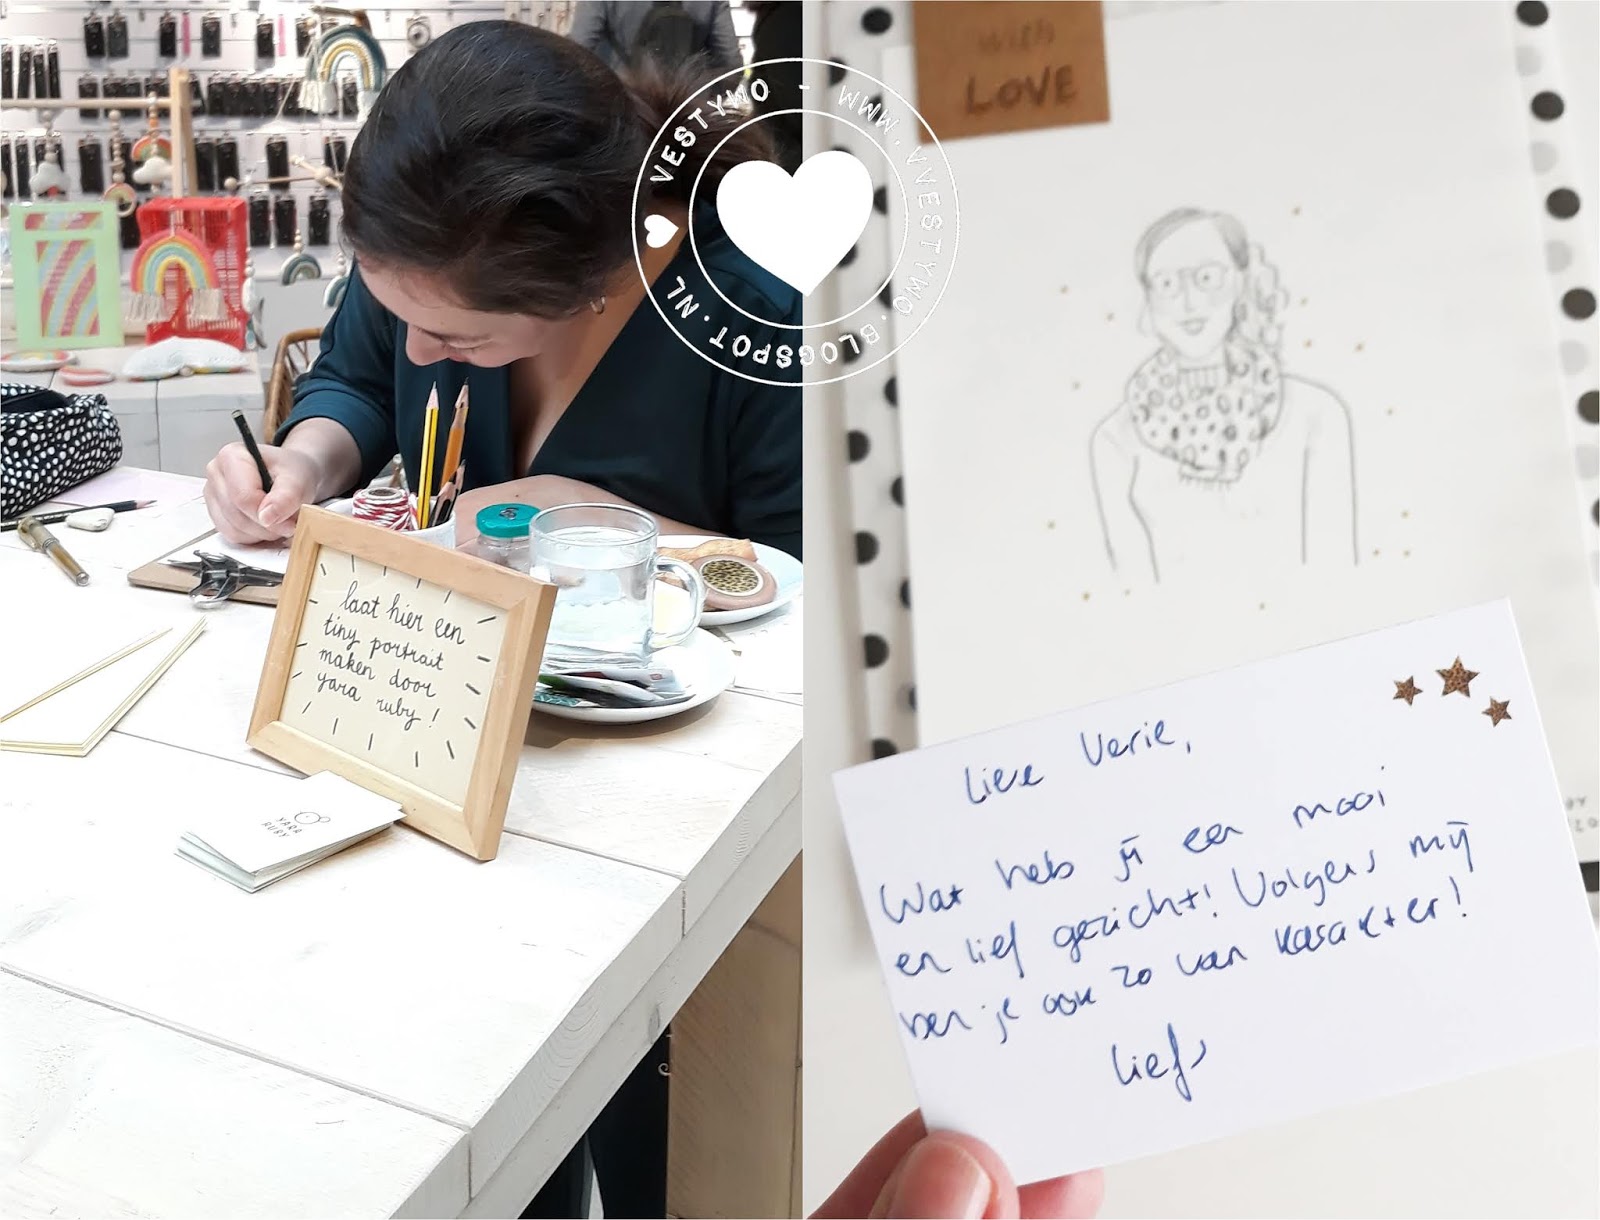 laat hier een
tiny portrait
maken door
yara ruby !
YARA
RUBY
VESTYWO - WWW.VVESTYWO.BLOGSPOT.NL
with
LOVE
Lieve Verie,
Wat heb jij een mooi
en lief gezicht! Volgens mij
ben je ook zo van karakter!
Liefs